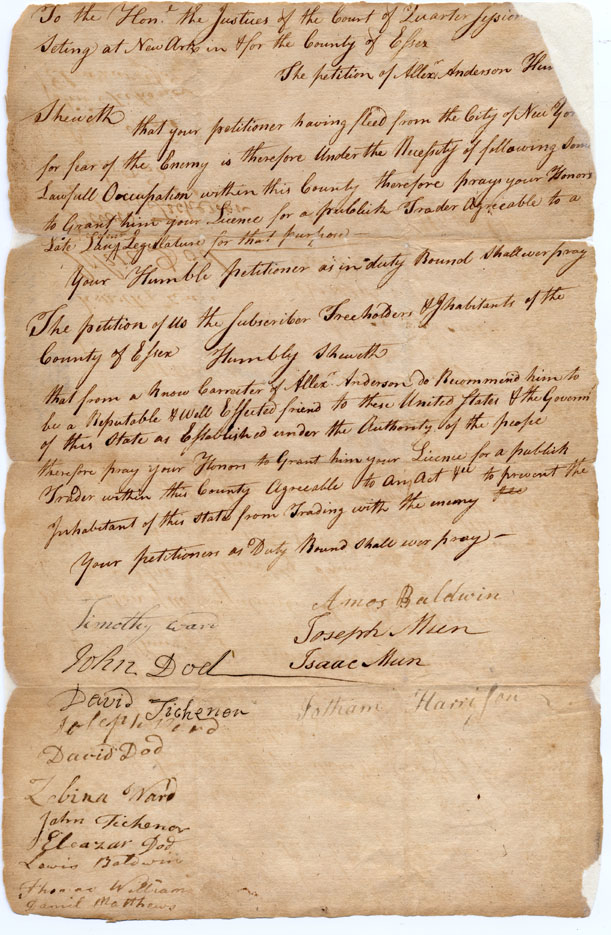 To the Honr. the Justices of the Court of Quarter Session
Seting at New Ark in & for the County of Essex
The petition of Allexr. Anderson Hum
Sheweth
that your petitioner having fleed from the City of New Yor
for fear of the Enemy is therefore Under the Necessity of following Some
Lawfull Occupation within this County therefore prays your Honors
to Grant him your Licence for a publick Trader Agreeable to a
Late Legislature for that purpose
Your Humble petitioner as in duty Bound Shall ever pray
The petition of Us the Subscriber Freeholders & Inhabitants of the
County of Essex Humbly Sheweth
that from a Know Carrecter of Allexr. Anderson do Recommend him to
be a Reputable & Well Effected friend to these United States & the Governmt
of this State as Established under the Authority of the people
therefore pray your Honors to Grant him your Licence for a publick
Trader within this County Agreeable to An Act &c to prevent the
Inhabitant of this State from Trading with the enemy
Your petitioners as Duty Bound Shall ever pray —
Timothy Ward Amos Baldwin
John Dod Joseph Mun
Isaac Mun
David Tichenor Jotham Harrison
Joseph
David Dod
Zebina Ward
John Tichenor
Eleazar Dod
Lewis Baldwin
Thomas William
Daniel Matthews